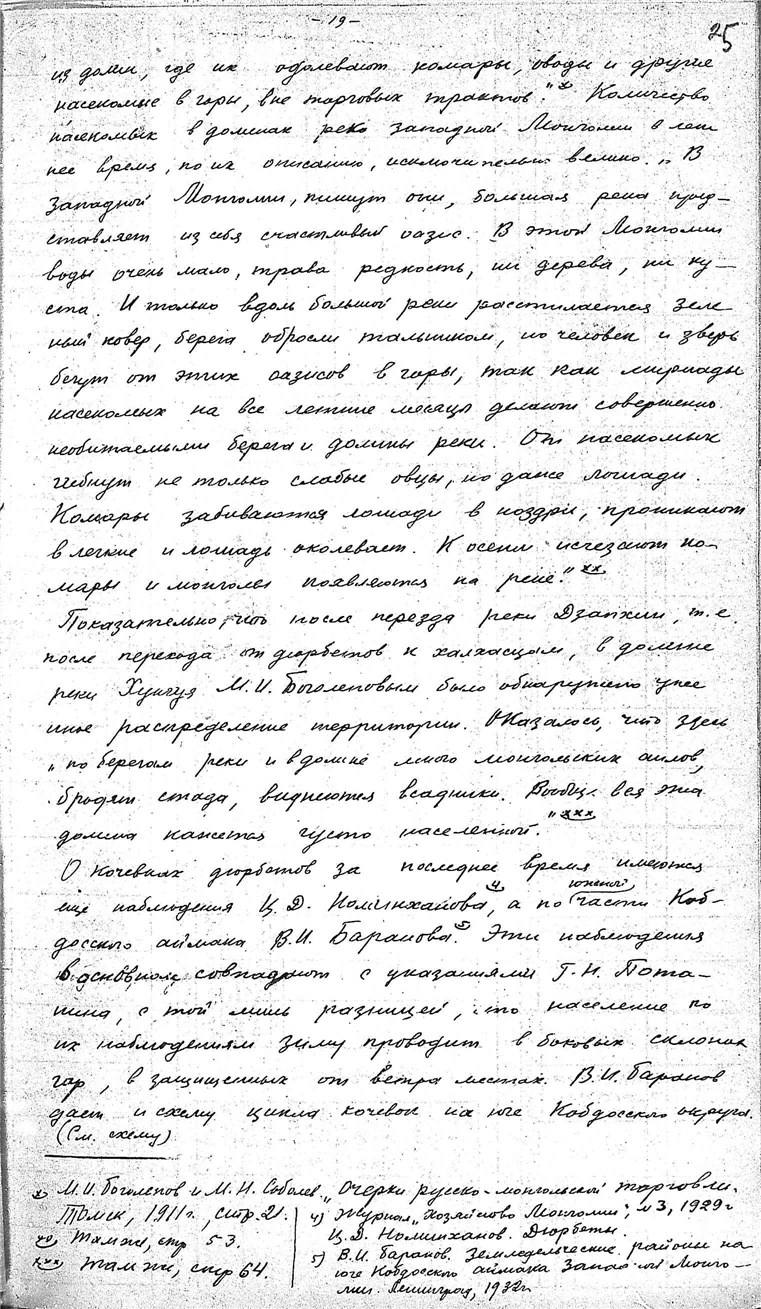 - 19 -
25
из долин, где их одолевают комары, оводы и другие
насекомые в горы, вне торговых трактов." х Количество
насекомых в долинах рек западной Монголии в лет
нее время, по их описанию, исключительно велико. „В
западной Монголии, пишут они, большая река пред-
ставляет из себя счастливый оазис. В этой Монголии
воды очень мало, трава редкость, ни дерева, ни ку-
ста. И только вдоль большой реки расстилается зеле
ный ковер, берега обросли тальником, но человек и зверь
бегут от этих оазисов в горы, так как мириады
насекомых на все летние месяцы делают совершенно
необитаемыми берега и долины реки. От насекомых
гибнут не только слабые овцы, но даже лошади.
Комары забиваются лошади в ноздри, проникают
в легкие и лошадь околевает. К осени исчезают ко-
мары и монголы появляются на реке." хх
Показательно, что после переезда реки Дзапхин, т.е.
после перехода от дюрбетов к халхасцам, в долине
реки Хунгуя М.И. Боголеповым было обнаружено уже
иное распределение территории. Оказалось, что здесь
„по берегам реки и в долине много монгольских аилов,
бродят стада, виднеются всадники. Вообще вся эта
долина кажется густо населенной." ххх
О кочевках дюрбетов за последнее время имеются
еще наблюдения Ц.Д. Номинханова 4, а по южной части Коб-
досского аймака В.И. Баранова 5. Эти наблюдения
в основном совпадают с указаниями Г.Н. Пота-
нина, с той лишь разницей, что население по
их наблюдениям зиму проводит в боковых склонах
гор, в защищенных от ветра местах. В.И. Баранов
дает и схему цикла кочевок на юге Кобдосского округа.
(См. схему)
х) М.И. Боголепов и М.Н. Соболев. „Очерки русско-монгольской торговли.
Томск, 1911 г., стр. 21.
хх) Там же, стр 53.
ххх) Там же, стр 64.
4) Журнал „Хозяйство Монголии", №3, 1929 г
Ц.Д. Номинханов. Дюрбеты.
5) В.И. Баранов. Земледельческие районы на
юге Кобдосского аймака Западной Монго-
лии. Ленинград, 1932 г